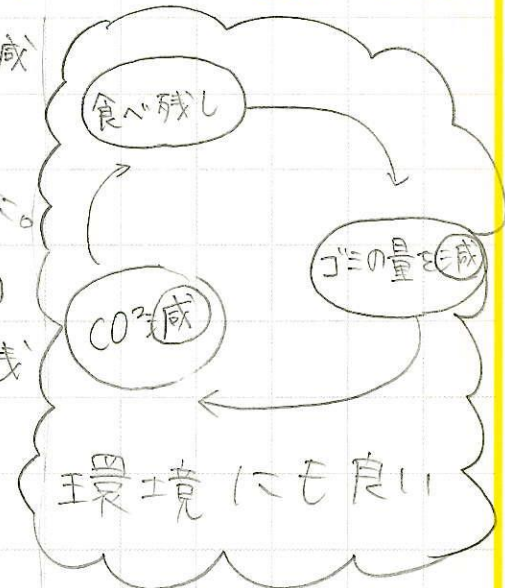 減
食べ残し
た。
ゴミの量を減
CO²減
環境にも良い